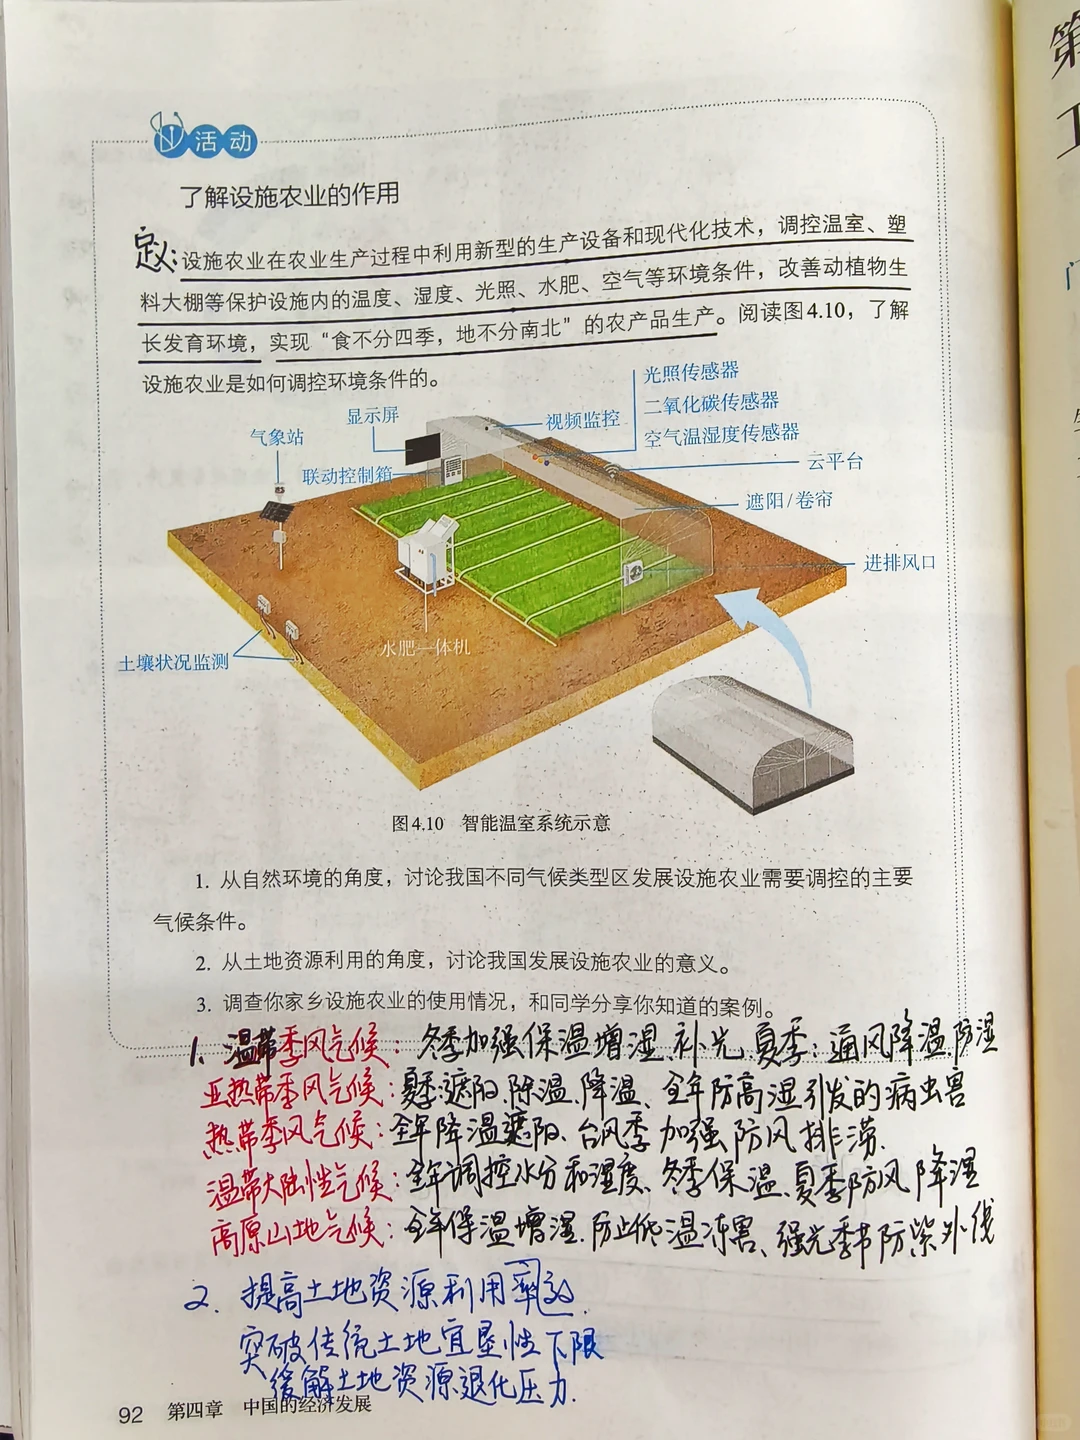 活动
了解设施农业的作用
定义:设施农业在农业生产过程中利用新型的生产设备和现代化技术，调控温室、塑
料大棚等保护设施内的温度、湿度、光照、水肥、空气等环境条件，改善动植物生
长发育环境，实现“食不分四季，地不分南北”的农产品生产。阅读图4.10，了解
设施农业是如何调控环境条件的。
光照传感器
二氧化碳传感器
空气温湿度传感器
显示屏
视频监控
气象站
联动控制箱
云平台
遮阳/卷帘
进排风口
水肥一体机
土壤状况监测
图4.10 智能温室系统示意
1. 从自然环境的角度，讨论我国不同气候类型区发展设施农业需要调控的主要
气候条件。
2. 从土地资源利用的角度，讨论我国发展设施农业的意义。
3. 调查你家乡设施农业的使用情况，和同学分享你知道的案例。
1. 温带季风气候：冬季加强保温增湿、补光，夏季：通风降温，防湿
亚热带季风气候：夏季遮阳、除湿、降温、全年防高湿引发的病虫害
热带季风气候：全年降温遮阳、台风季加强防风排涝.
温带大陆性气候：全年调控水分和湿度、冬季保温、夏季防风降湿
高原山地气候：全年保温增湿、防止低温冻害、强光季节防紫外线
2. 提高土地资源利用率
突破传统土地宜垦性下限
缓解土地资源退化压力.
92 第四章 中国的经济发展
第